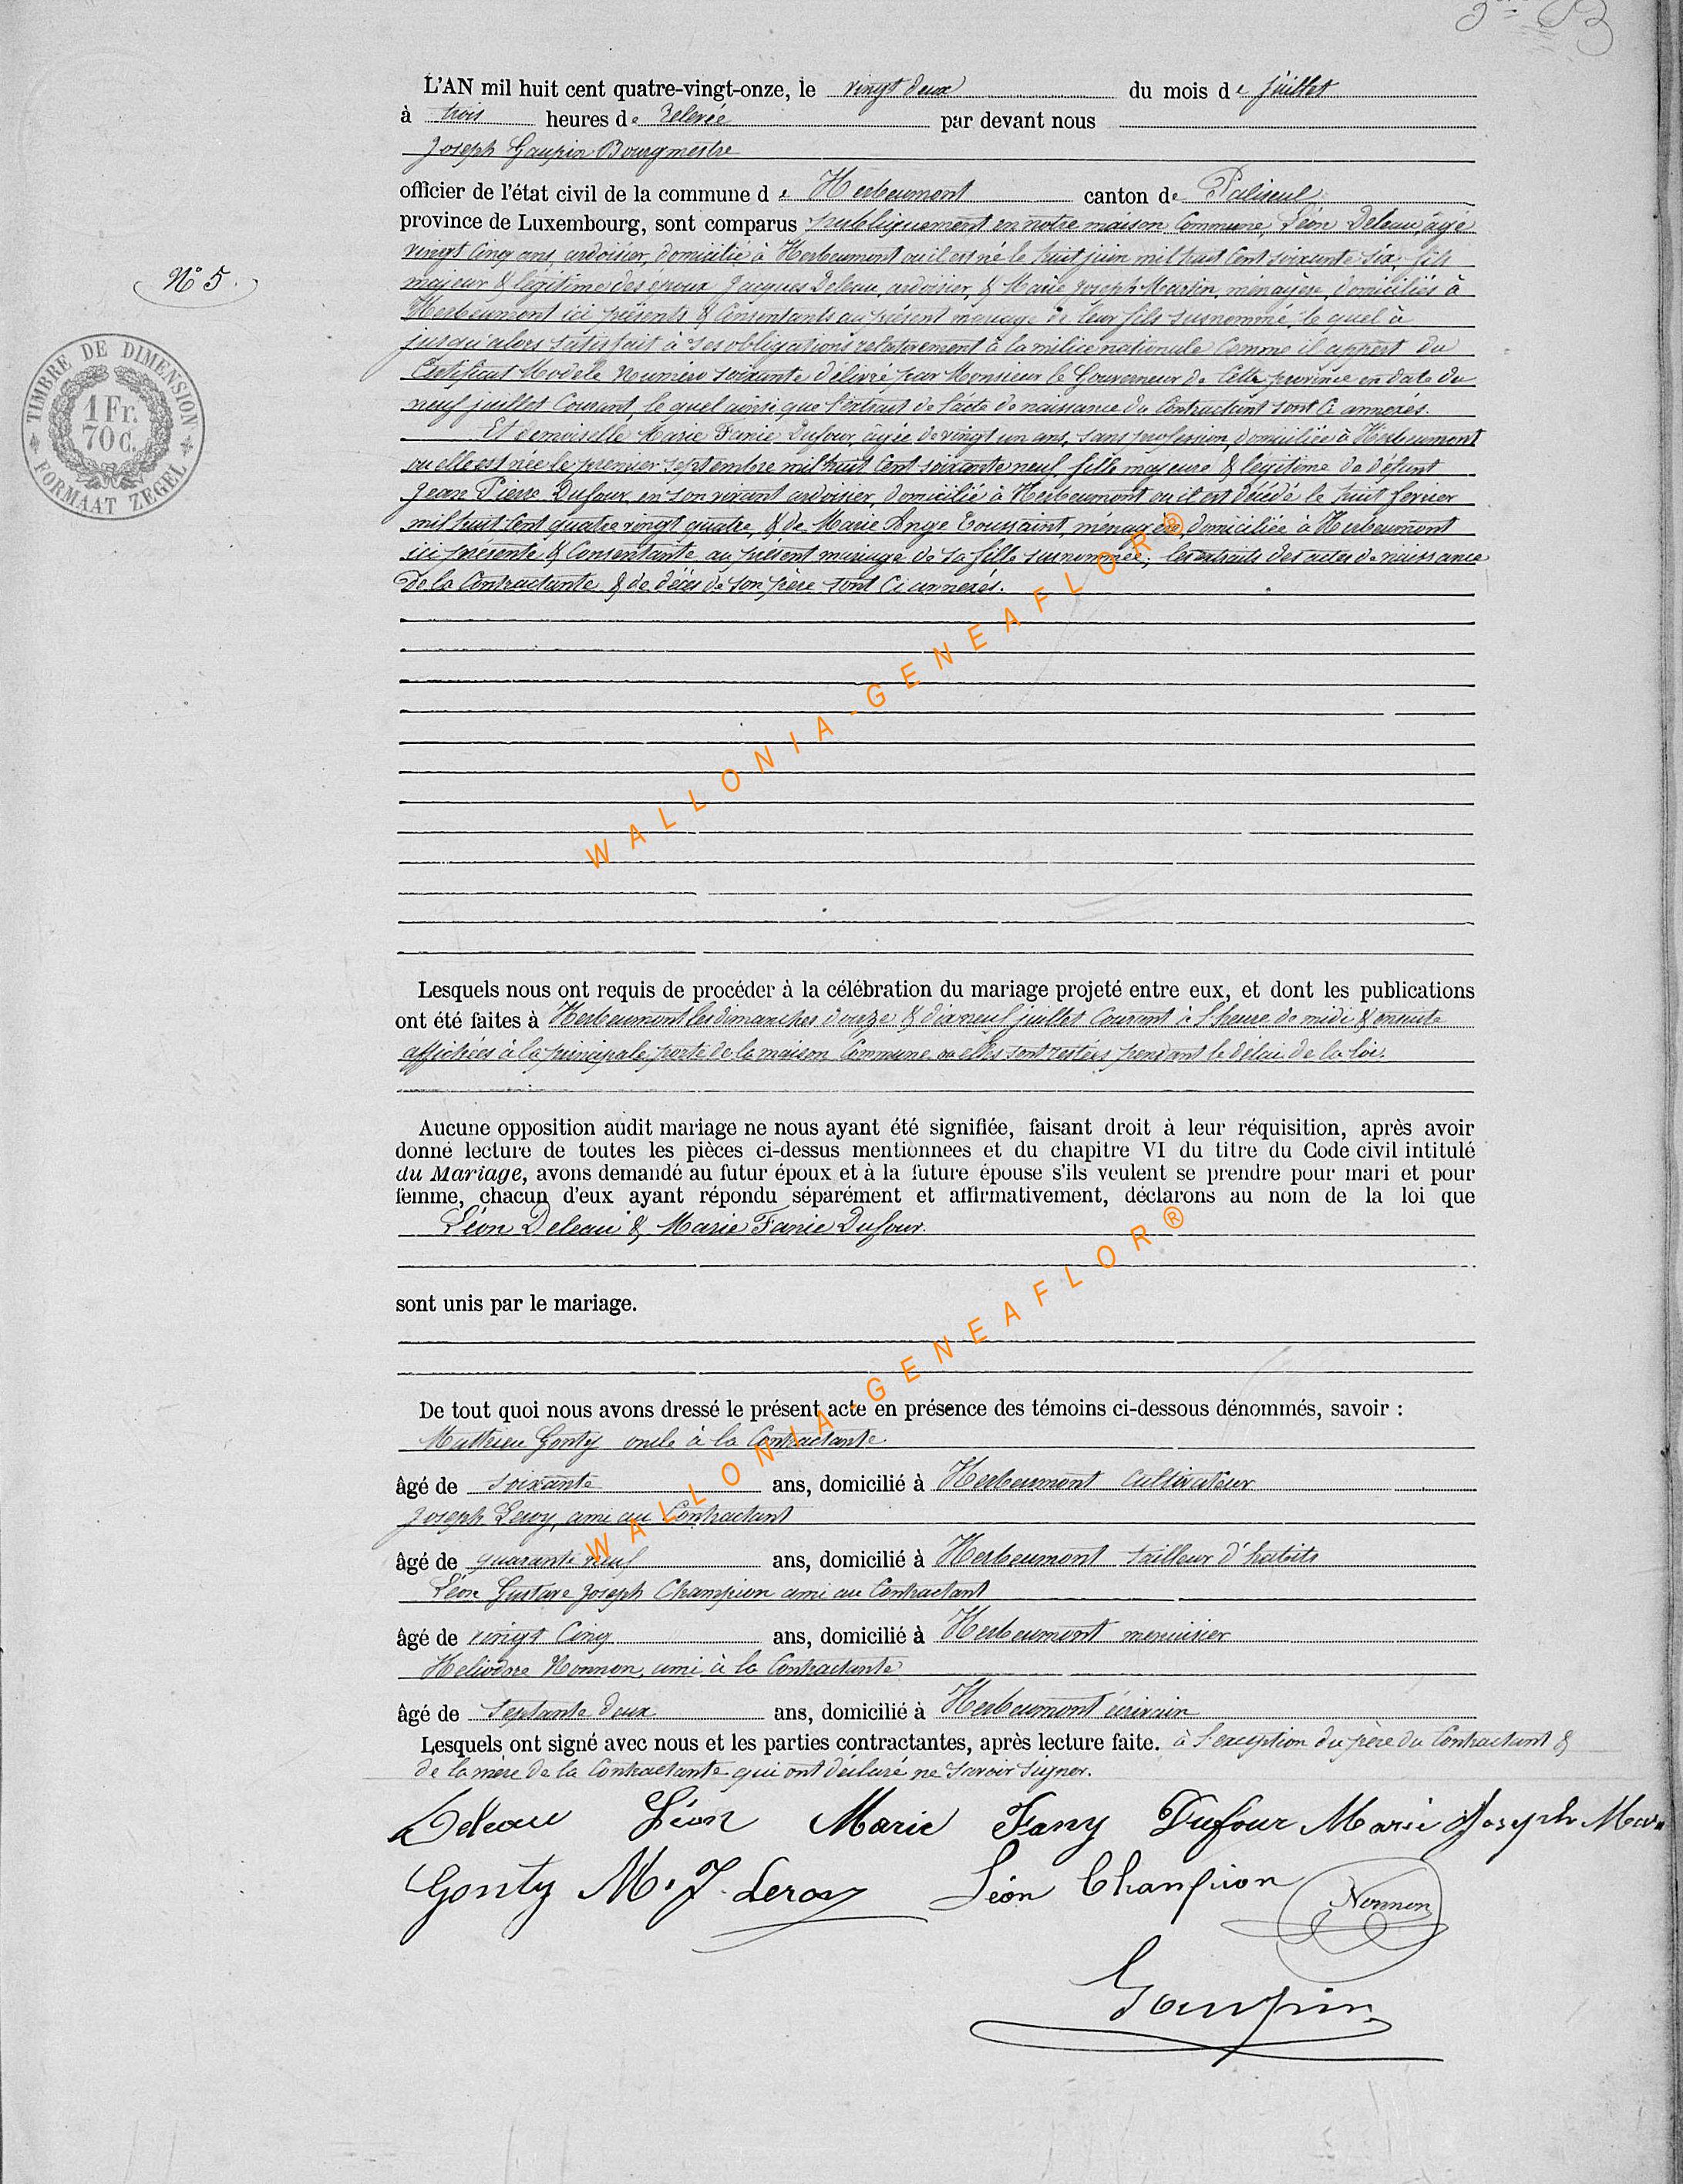 L'AN mil huit cent quatre-vingt-onze, le vingt deux du mois de juillet
à trois heures de relevée par devant nous
Joseph Gaupin Bourgmestre
officier de l'état civil de la commune de Herbeumont canton de Paliseul
province de Luxembourg, sont comparus publiquement en notre maison Commune, Léon Deleau, âgé
vingt Cinq ans, ardoisier, domicilié à Herbeumont ou il est né le huit juin mil huit Cent soixante six, fils
majeur & légitime des époux Jacques Deleau, ardoisier, & Marie Joseph Martin, ménagère, domiciliés à
Herbeumont ici présents & Consentants au présent mariage de leur fils susnommé, le quel à
jusqu'alors satisfait à ses obligations relativement à la milice nationale Comme il appert du
Certificat Modèle Numéro soixante délivré par Monsieur le Gouverneur de Cette province en date du
neuf juillet Courant, le quel ainsi que l'extrait de l'acte de naissance du Contractant sont Ci annexés.
Et demoiselle Marie Fanie Dufour, âgée de vingt un ans, sans profession, domiciliée à Herbeumont
ou elle est née le premier septembre mil huit Cent soixante neuf fille majeure & légitime de défunt
Jean Pierre Dufour, en son vivant ardoisier, domicilié à Herbeumont ou il est décédé le huit fevrier
mil huit Cent quatre vingt quatre, & de Marie Ange Toussaint, ménagère, domiciliée à Herbeumont
ici présente & Consentante au présent mariage de sa fille susnommée; les extraits des actes de naissance
de la Contractante & de décès de son père sont Ci annexés.
N° 5.
TIMBRE DE DIMENSION
1 Fr.
70 C.
FORMAAT ZEGEL
WALLONIA-GENEAFLOR®
Lesquels nous ont requis de procéder à la célébration du mariage projeté entre eux, et dont les publications
ont été faites à Herbeumont les dimanches douze & dix neuf juillet Courant à l'heure de midi & ensuite
affichées à la principale porte de la maison Commune ou elles sont restées pendant le délai de la loi.
Aucune opposition audit mariage ne nous ayant été signifiée, faisant droit à leur réquisition, après avoir
donné lecture de toutes les pièces ci-dessus mentionnees et du chapitre VI du titre du Code civil intitulé
du Mariage, avons demandé au futur époux et à la future épouse s'ils veulent se prendre pour mari et pour
femme, chacun d'eux ayant répondu séparément et affirmativement, déclarons au nom de la loi que
Léon Deleau & Marie Fanie Dufour.
sont unis par le mariage.
WALLONIA-GENEAFLOR®
De tout quoi nous avons dressé le présent acte en présence des témoins ci-dessous dénommés, savoir :
Mathieu Gonty oncle à la Contractante
âgé de soixante ans, domicilié à Herbeumont Cultivateur
Joseph Leroy, ami au Contractant
âgé de quarante neuf ans, domicilié à Herbeumont tailleur d'habits
Léon Gustave Joseph Champion ami au Contractant
âgé de vingt Cinq ans, domicilié à Herbeumont menuisier
Heliodore Nonnon, ami à la Contractante
âgé de Septante deux ans, domicilié à Herbeumont écrivain
Lesquels ont signé avec nous et les parties contractantes, après lecture faite. à l'exception du père du Contractant &
de la mère de la Contractante qui ont déclaré ne savoir signer.
Deleau Léon Marie Fany Dufour Marie Joseph
Gonty M. J. Leroy Léon Champion Nonnon
Gaupin